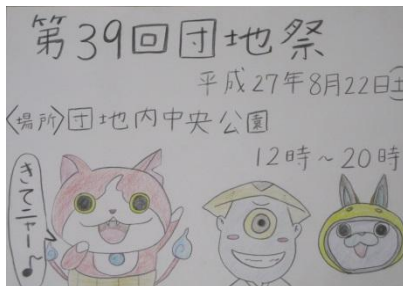 第39回団地祭
平成27年8月22日(土
<場所>団地内中央公園
12時～20時
きてニャー♪